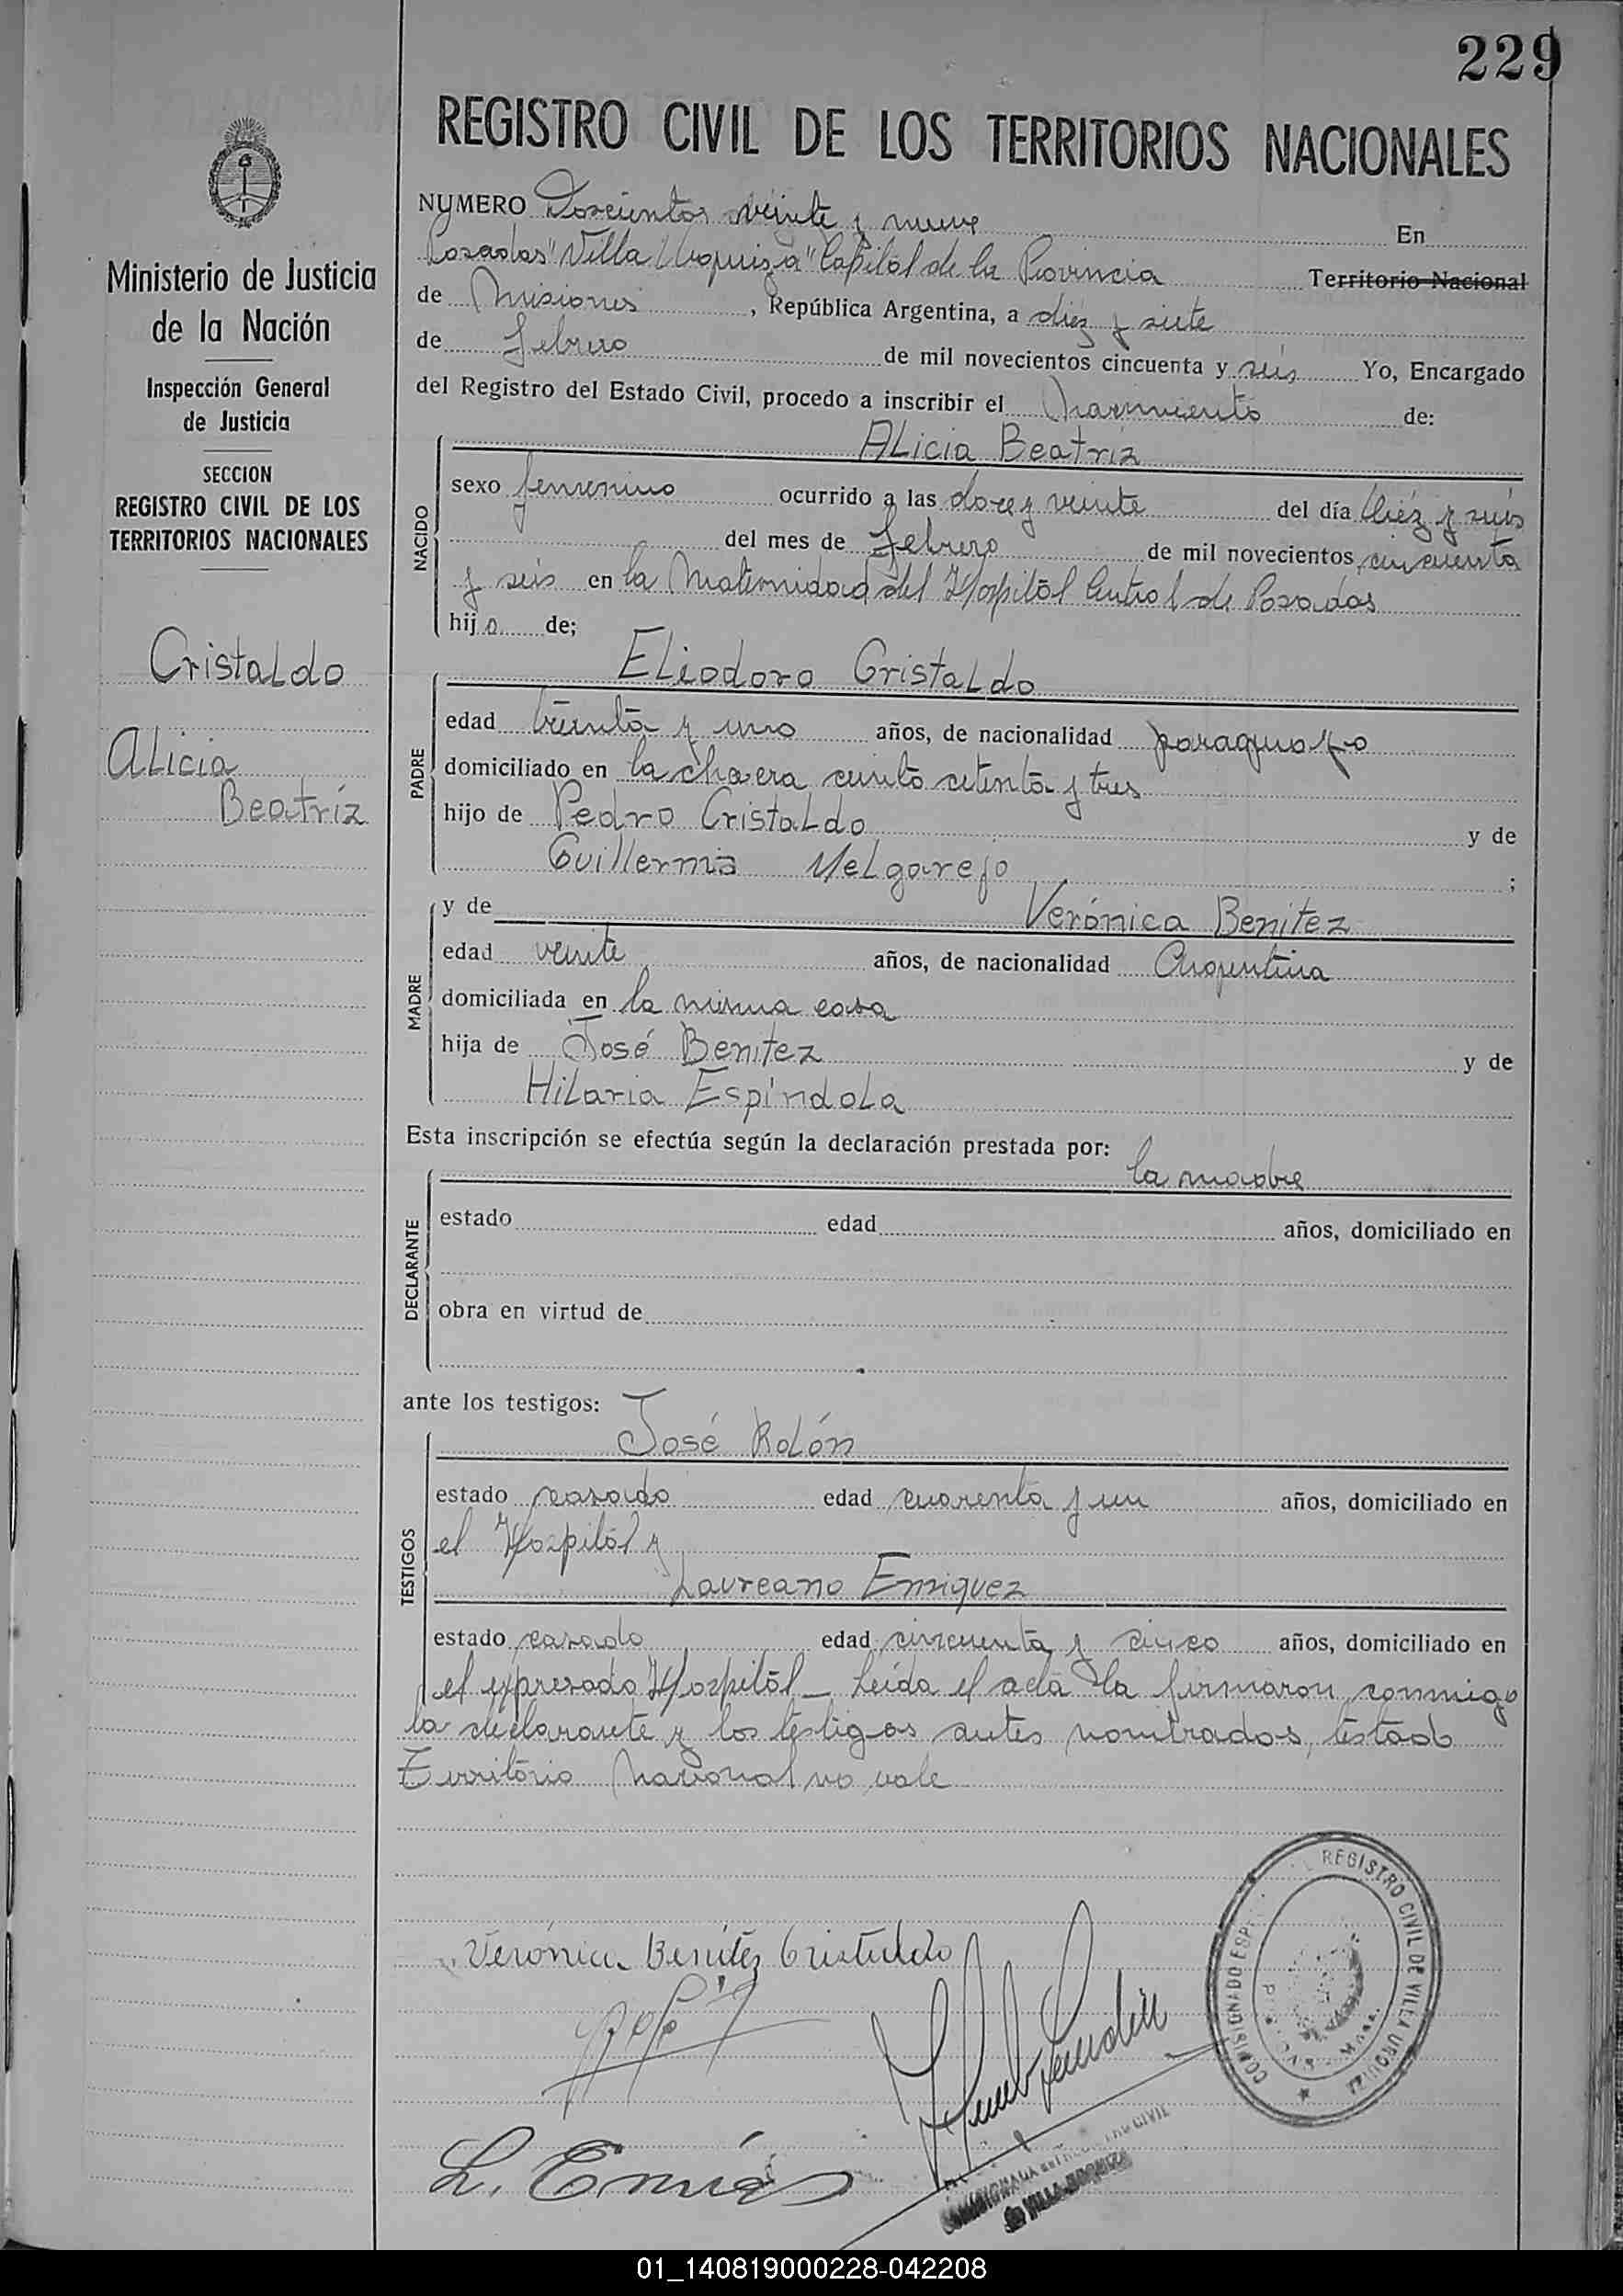 229
REGISTRO CIVIL DE LOS TERRITORIOS NACIONALES
Ministerio de Justicia
de la Nación
Inspección General
de Justicia
SECCION
REGISTRO CIVIL DE LOS
TERRITORIOS NACIONALES
Cristaldo
Alicia
Beatríz
NUMERO Doscientos veinte y nueve En
Posadas "Villa Urquiza" Capital de la Provincia Territorio Nacional
de Misiones, República Argentina, a diez y siete
de febrero de mil novecientos cincuenta y seis Yo, Encargado
del Registro del Estado Civil, procedo a inscribir el Nacimiento de:
NACIDO
Alicia Beatríz
sexo femenino ocurrido a las doce y veinte del día diéz y seis
del mes de febrero de mil novecientos cincuenta
y seis en la Maternidad del Hospital Central de Posadas
hija de;
PADRE
Eliodoro Cristaldo
edad treinta y uno años, de nacionalidad paraguayo
domiciliado en la chacra ciento setenta y tres
hijo de Pedro Cristaldo y de
Guillerma Melgarejo ;
MADRE
y de Verónica Benitez
edad veinte años, de nacionalidad Argentina
domiciliada en la misma casa
hija de José Benitez y de
Hilaria Espíndola
Esta inscripción se efectúa según la declaración prestada por:
DECLARANTE
la madre
estado edad años, domiciliado en
obra en virtud de
ante los testigos:
TESTIGOS
José Rolón
estado casado edad cuarenta y un años, domiciliado en
el Hospital y
Laureano Emiquez
estado casado edad cincuenta y cinco años, domiciliado en
el expresado Hospital_ Leída el acta la firmaron conmigo
la declarante y los testigos antes nombrados, testado
Territorio Nacional no vale
REGISTRO CIVIL DE VILLA URQUIZA
Verónica Benítez Cristaldo
01_140819000228-042208